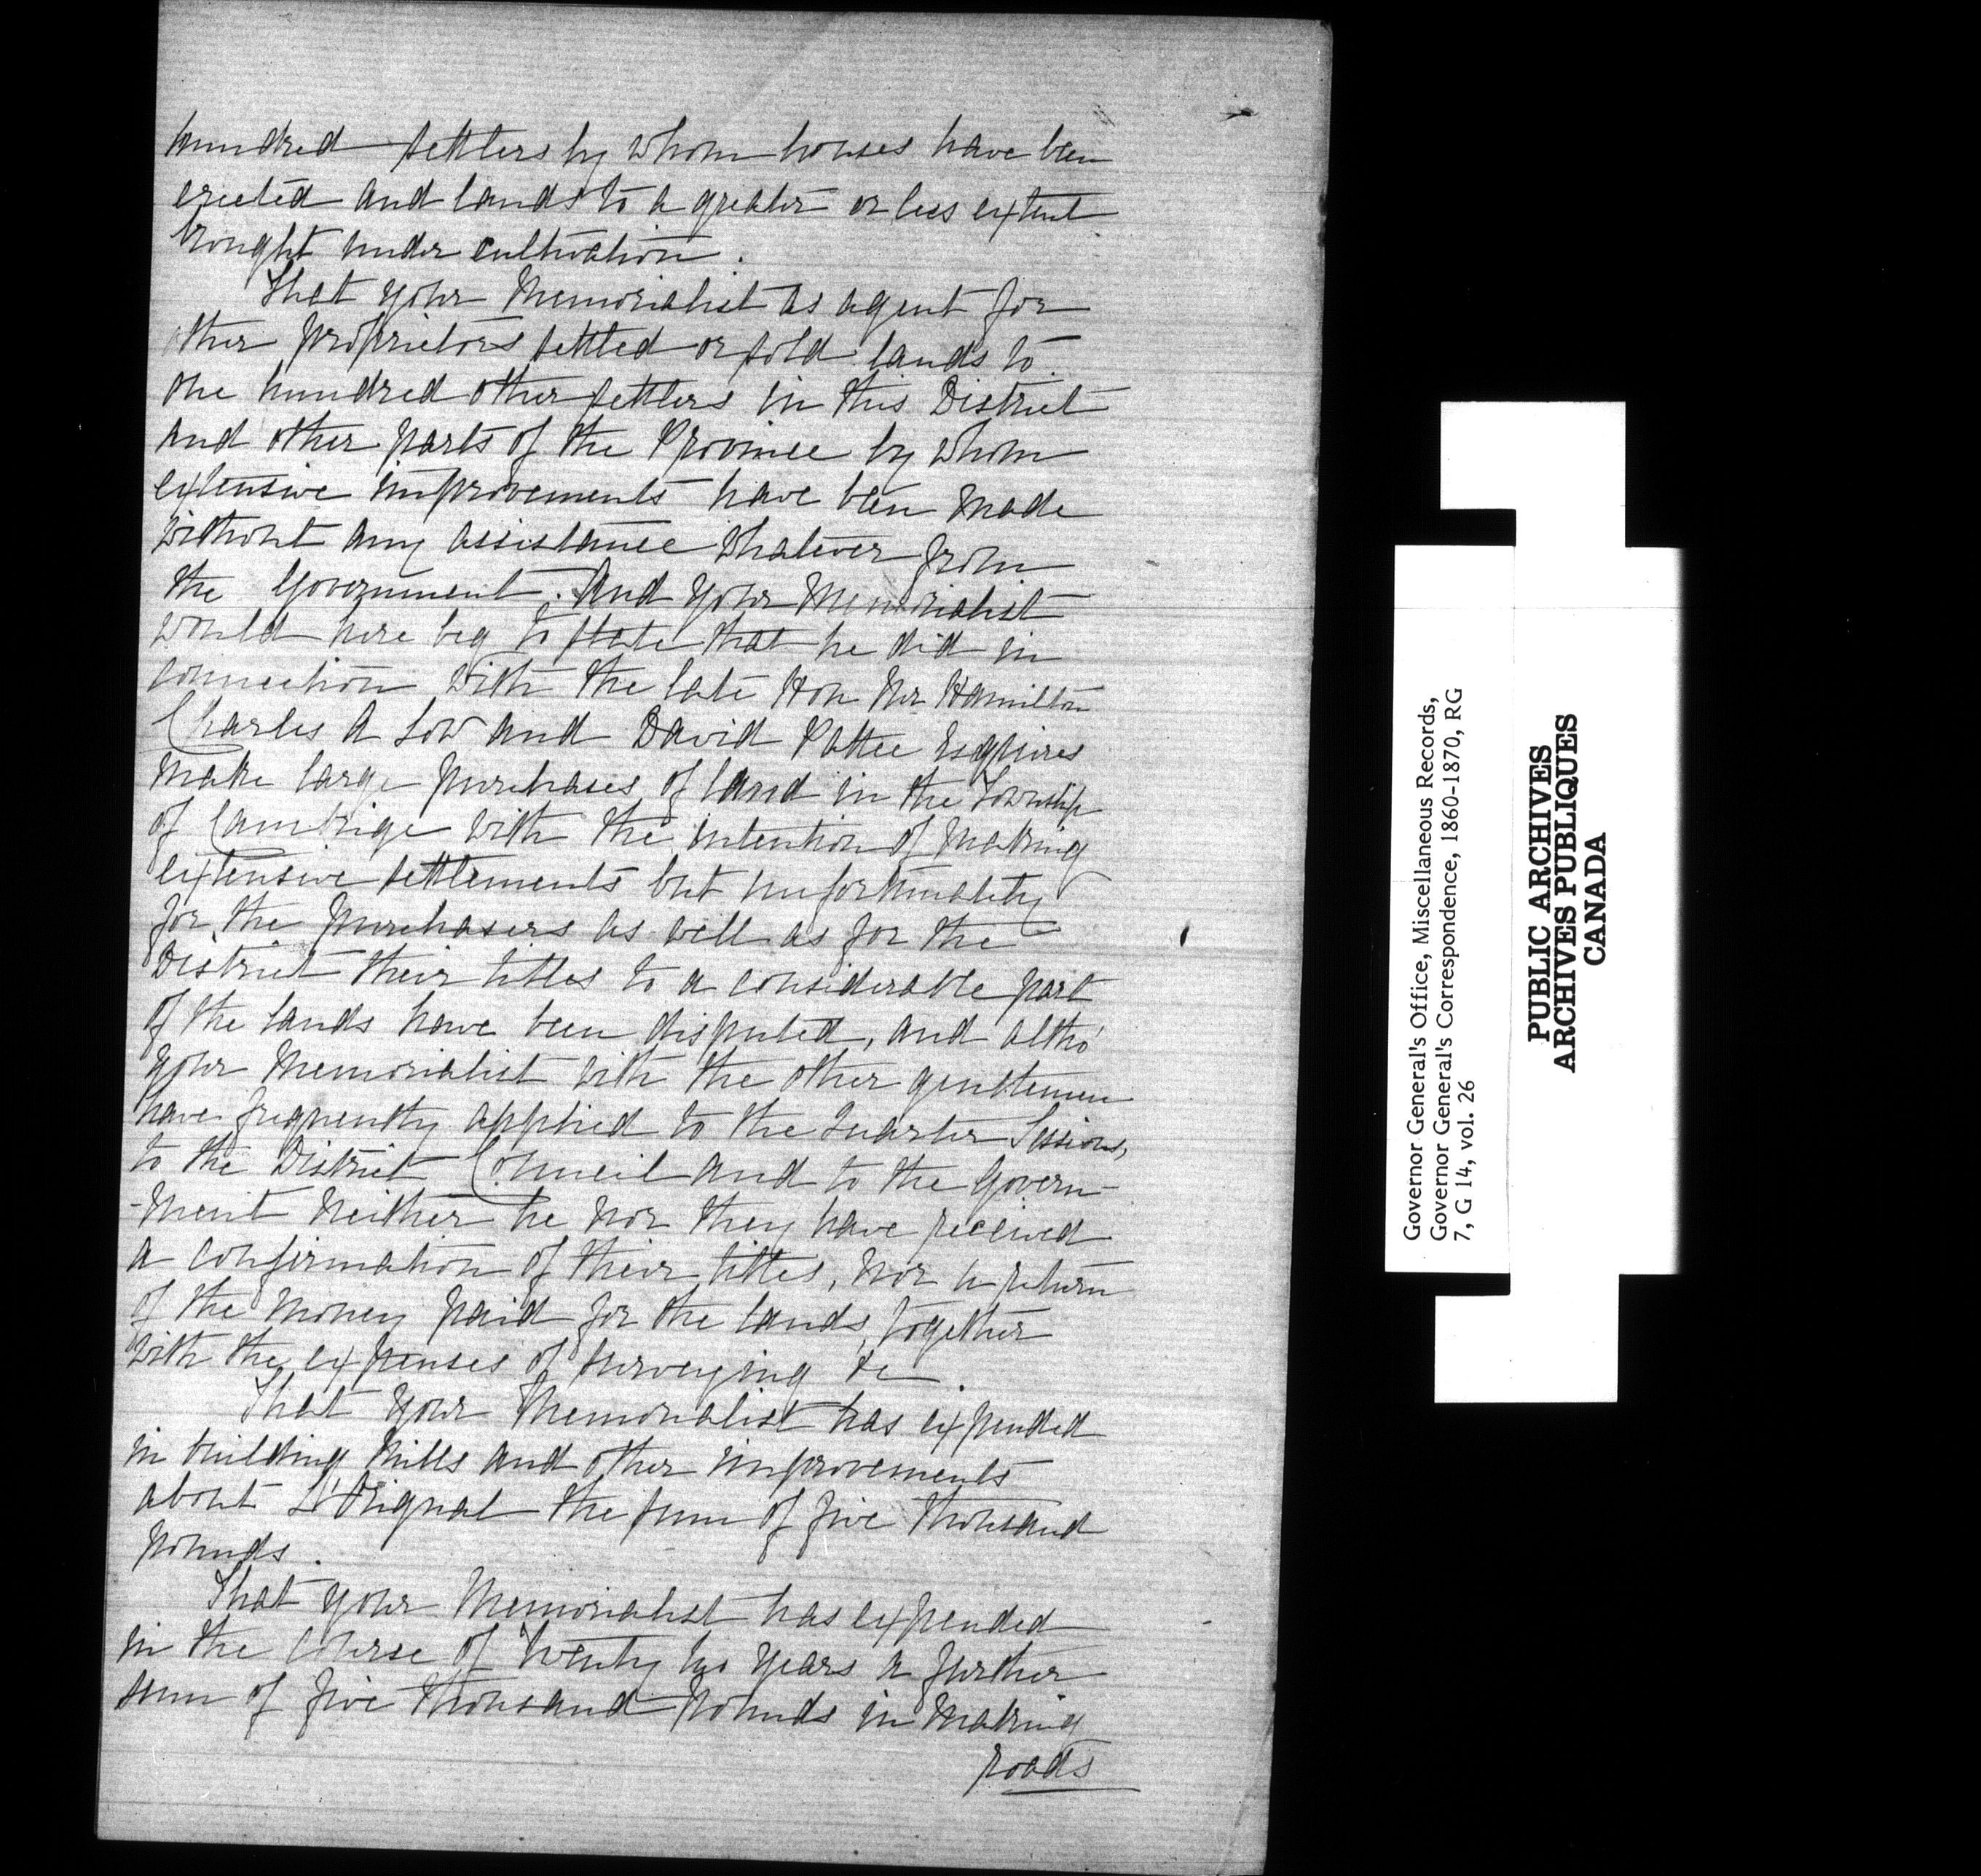 hundred settlers by whom houses have been
erected and lands to a greater or less extent
brought under cultivation.
That your Memorialist as agent for
other proprietors settled or sold lands to
one hundred other settlers in this District
and other parts of the Province by whom
extensive improvements have been made
without any assistance whatever from
the Government. And your Memorialist
would here beg to state that he did in
connection with the late Hon Mr Hamilton
Charles A Low and David Pattee Esquires
make large purchases of land in the Township
of Cambrige with the intention of making
extensive settlements but unfortunately
for the purchasers as well as for the
District their titles to a considerable part
of the lands have been disputed, and altho'
your Memorialist with the other gentlemen
have frequently applied to the Quarter Sessions,
to the District Council and to the Govern-
-ment neither he nor they have received
a confirmation of their titles, nor a return
of the money paid for the lands, together
with the expenses of surveying &c.
That your Memorialist has expended
in building mills and other improvements
about L'Orignal the sum of five thousand
pounds.
That your Memorialist has expended
in the course of twenty two years a further
sum of five thousand pounds in making
roads
Governor General's Office, Miscellaneous Records,
Governor General's Correspondence, 1860-1870, RG
7, G 14, vol. 26
PUBLIC ARCHIVES
ARCHIVES PUBLIQUES
CANADA